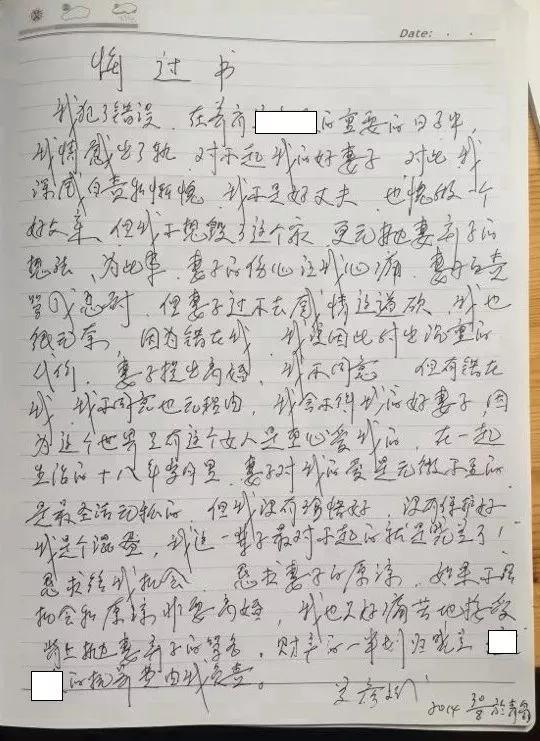 Date: . .
悔过书
我犯了错误.在养育 的重要的日子中,
我情感出了轨.对不起我的好妻子.对此我
深感自责和惭愧.我不是好丈夫.也愧做一个
好父亲.但我不想毁了这个家.更无抛妻弃子的
想法,为此事.妻子的伤心让我心痛.妻
但妻子过不去感情这道砍,我也
很无奈,因为错在我.我要因此付出沉重的
代价.妻子提出离婚,我不同意.但有错在
我.我不同意也无理由,我舍不得我的好妻子,因
为这个世界只有这个女人是真心爱我的.在一起
生活的十八年岁月里.妻子对我的爱是无微不至的
是最圣洁无私的.但我没有珍惜好,没有保护好
我是个混蛋,我这一辈子最对不起的就是 了!
恳求给我机会.恳求妻子的原谅.如果不给
机会和原谅非要离婚,我也只好痛苦地接受
背上抛妻弃子的骂名.财产的一半划归
的抚养费由我负责。
2014 30/8 於青岛